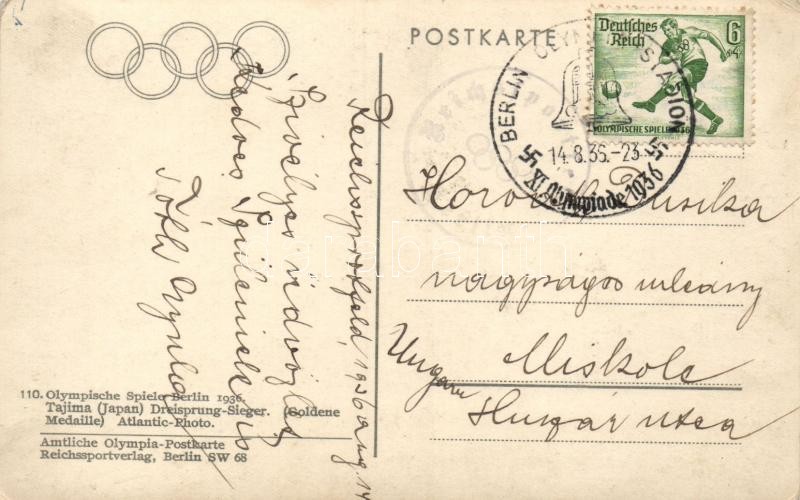 POSTKARTE
Deutsches
Reich
6
OLYMPISCHE SPIELE 1936
BERLIN OLYMPIA-STADION
14.8.36.-23
XI. Olympiade 1936
Reichssportfeld, 1936 aug 14
Szívélyes üdvözlet
Kedves
Tóth Gyula
nagyságos urleány
Miskolc
Ungarn
Huszár utca
110. Olympische Spiele Berlin 1936.
Tajima (Japan) Dreisprung-Sieger. (Goldene
Medaille) Atlantic-Photo.
Amtliche Olympia-Postkarte
Reichssportverlag, Berlin SW 68
darabanth